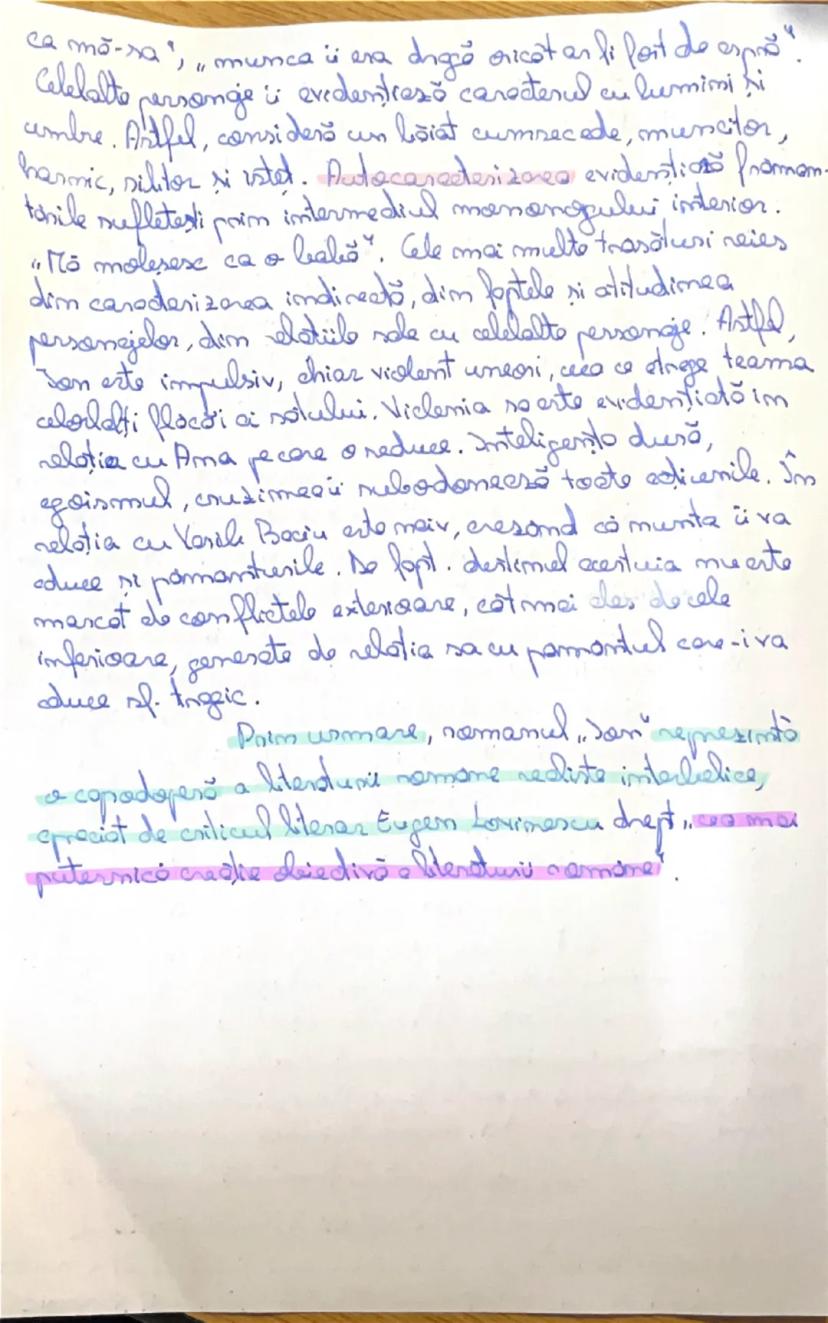 ca mă-sa", „munca îi era dragă oricât ar fi fost de aspră".
Celelalte personaje îi evidențiază caracterul cu lumini și
umbre. Astfel, consideră un băiat cumsecade, muncitor,
harnic, silitor și isteț. Autocaracterizarea evidențiază frămân-
tările sufletești prin intermediul monongului interior.
„Mă moleșesc ca o babă". Cele mai multe trasături reies
din caracterizarea indirectă, din faptele și atitudinea
personajelor, din relațiile sale cu celelalte personaje. Astfel,
Ion este impulsiv, chiar violent uneori, ceea ce atrage teama
celorlalți flăcăi ai satului. Viclenia sa este evidențiată în
relația cu Ana pe care o seduce. Inteligența dură,
egoismul, cruzimea îi subordonează toate acțiunile. În
relația cu Vasile Baciu este naiv, crezând că nunta îi va
aduce și pământurile. De fapt. destinul acestuia nu este
marcat de conflictele exterioare, cât mai ales de cele
inferioare, generate de relația sa cu pământul care-i va
aduce sf. tragic.
Prin urmare, romanul „Ion" reprezintă
o capodoperă a literaturii române realiste interbelice,
apreciat de criticul literar Eugen Lovinescu drept „cea mai
puternică creație obiectivă a literaturii române".